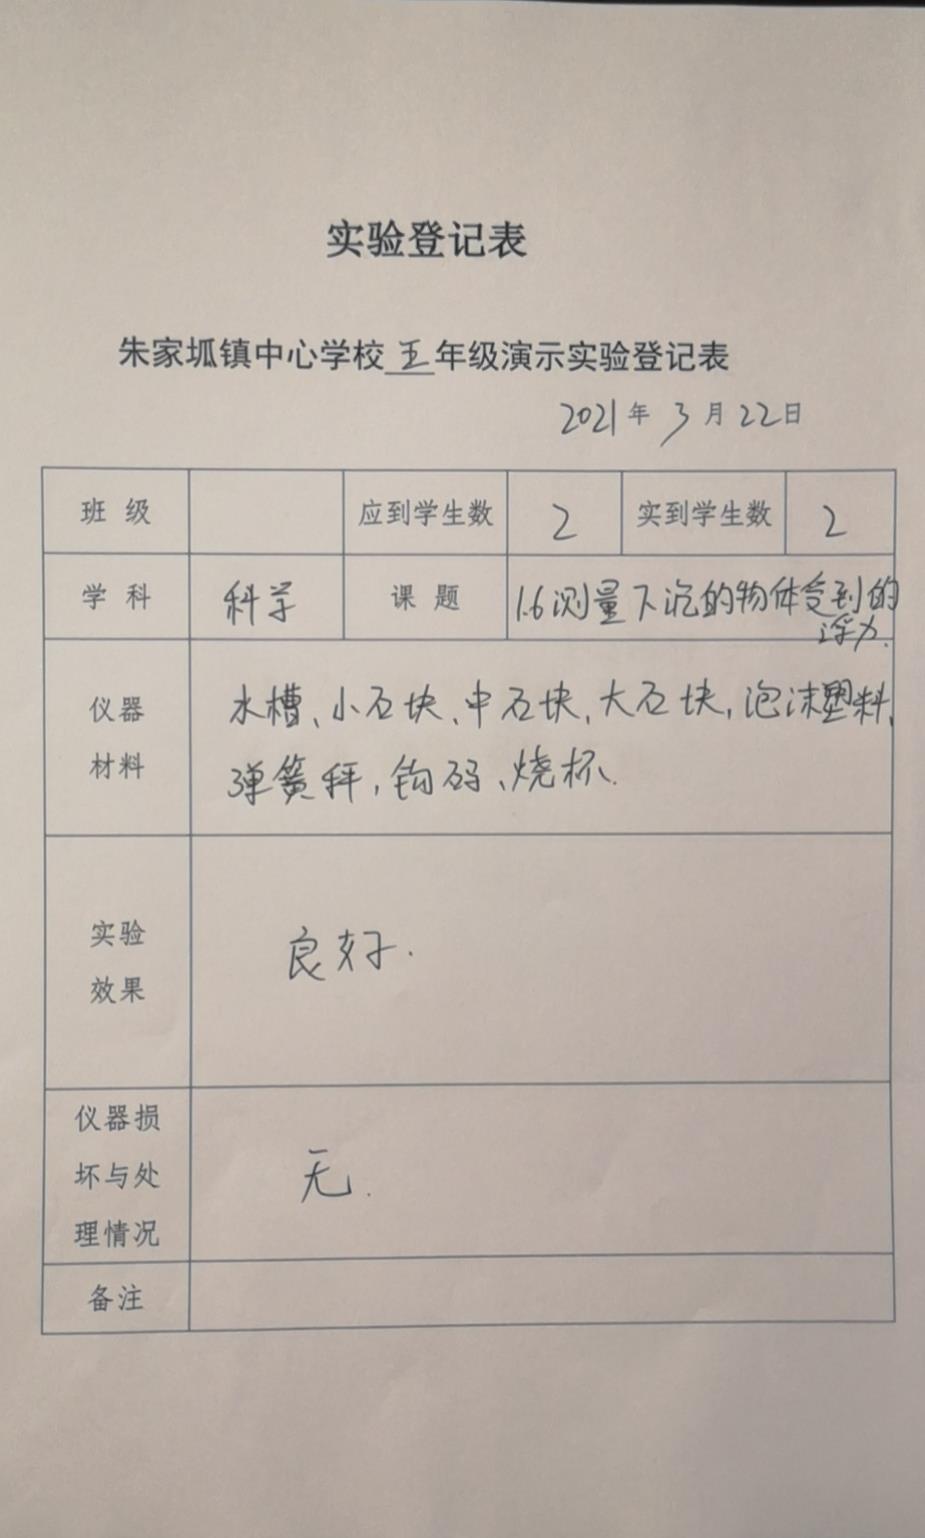 实验登记表
朱家坬镇中心学校五年级演示实验登记表
2021年3月22日
班 级 应到学生数 2 实到学生数 2
学 科 科学 课 题 1.6测量下沉的物体受到的
浮力.
仪器
材料
水槽、小石块、中石块、大石块,泡沫塑料、
弹簧秤,钩码、烧杯.
实验
效果
良好.
仪器损
坏与处
理情况
无.
备注